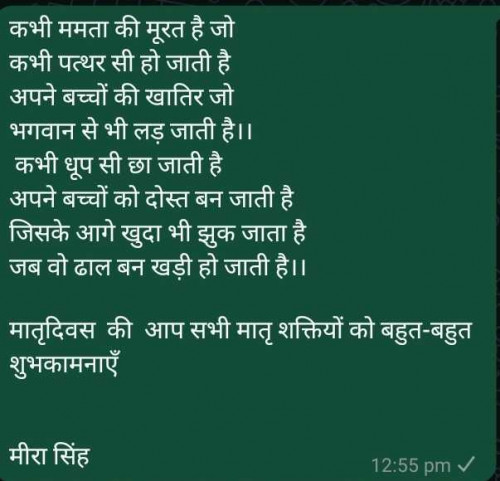 कभी ममता की मूरत है जो
कभी पत्थर सी हो जाती है
अपने बच्चों की खातिर जो
भगवान से भी लड़ जाती है।।
कभी धूप सी छा जाती है
अपने बच्चों को दोस्त बन जाती है
जिसके आगे खुदा भी झुक जाता है
जब वो ढाल बन खड़ी हो जाती है।।
मातृदिवस की आप सभी मातृ शक्तियों को बहुत-बहुत
शुभकामनाएँ
मीरा सिंह
12:55 pm ✓